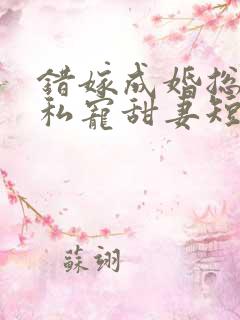 錯嫁成婚總
私寵甜妻短
蘇翊